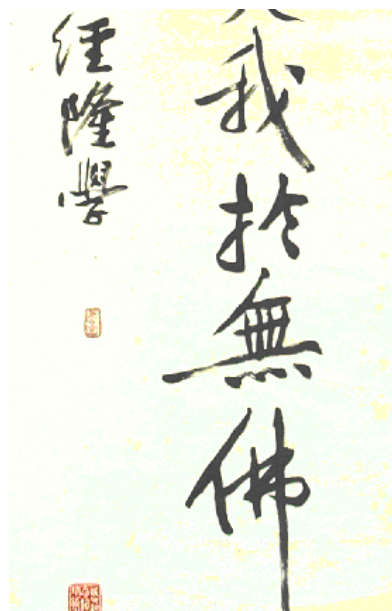 我於無佛
經隆學